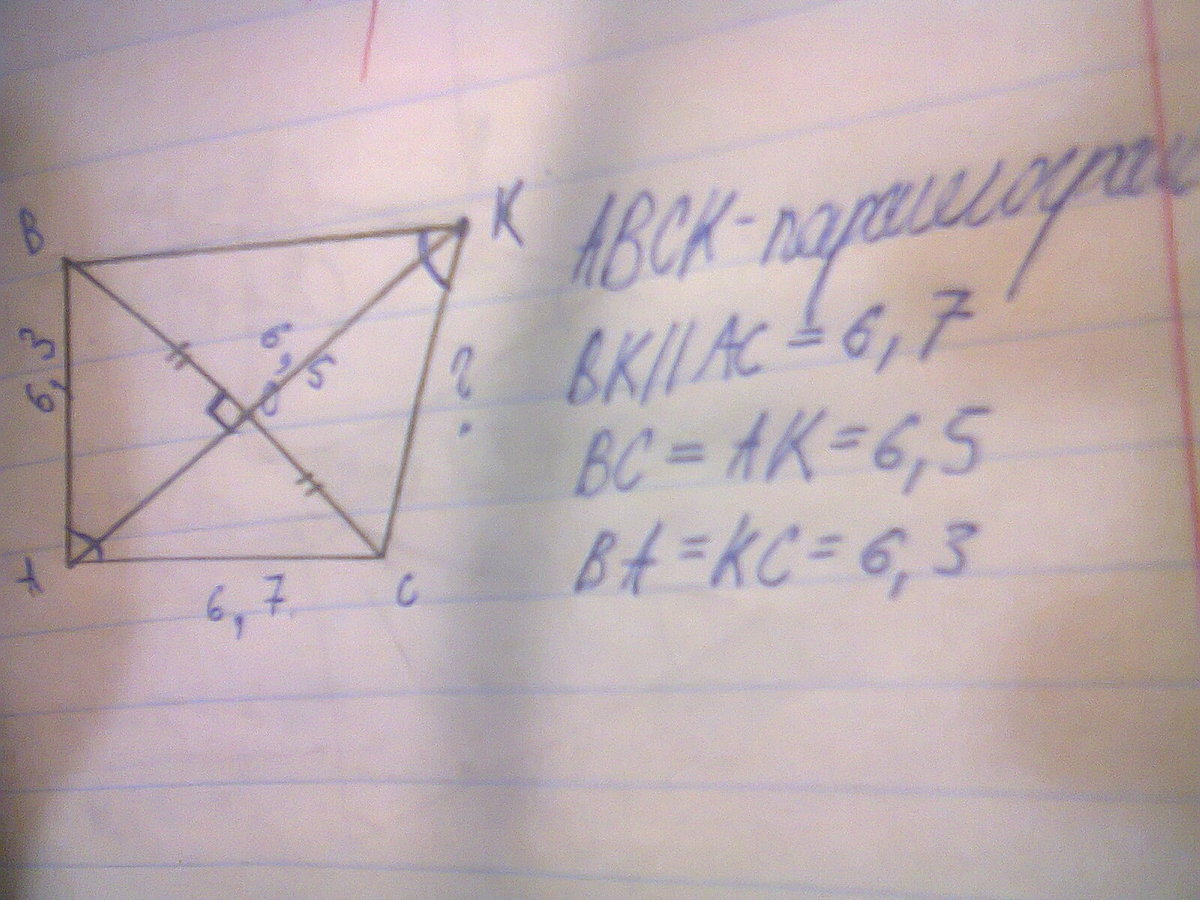 B
K
6,3
6,5
?
A
6,7
C
ABCK-
BK//AC = 6,7
BC = AK = 6,5
BA = KC = 6,3